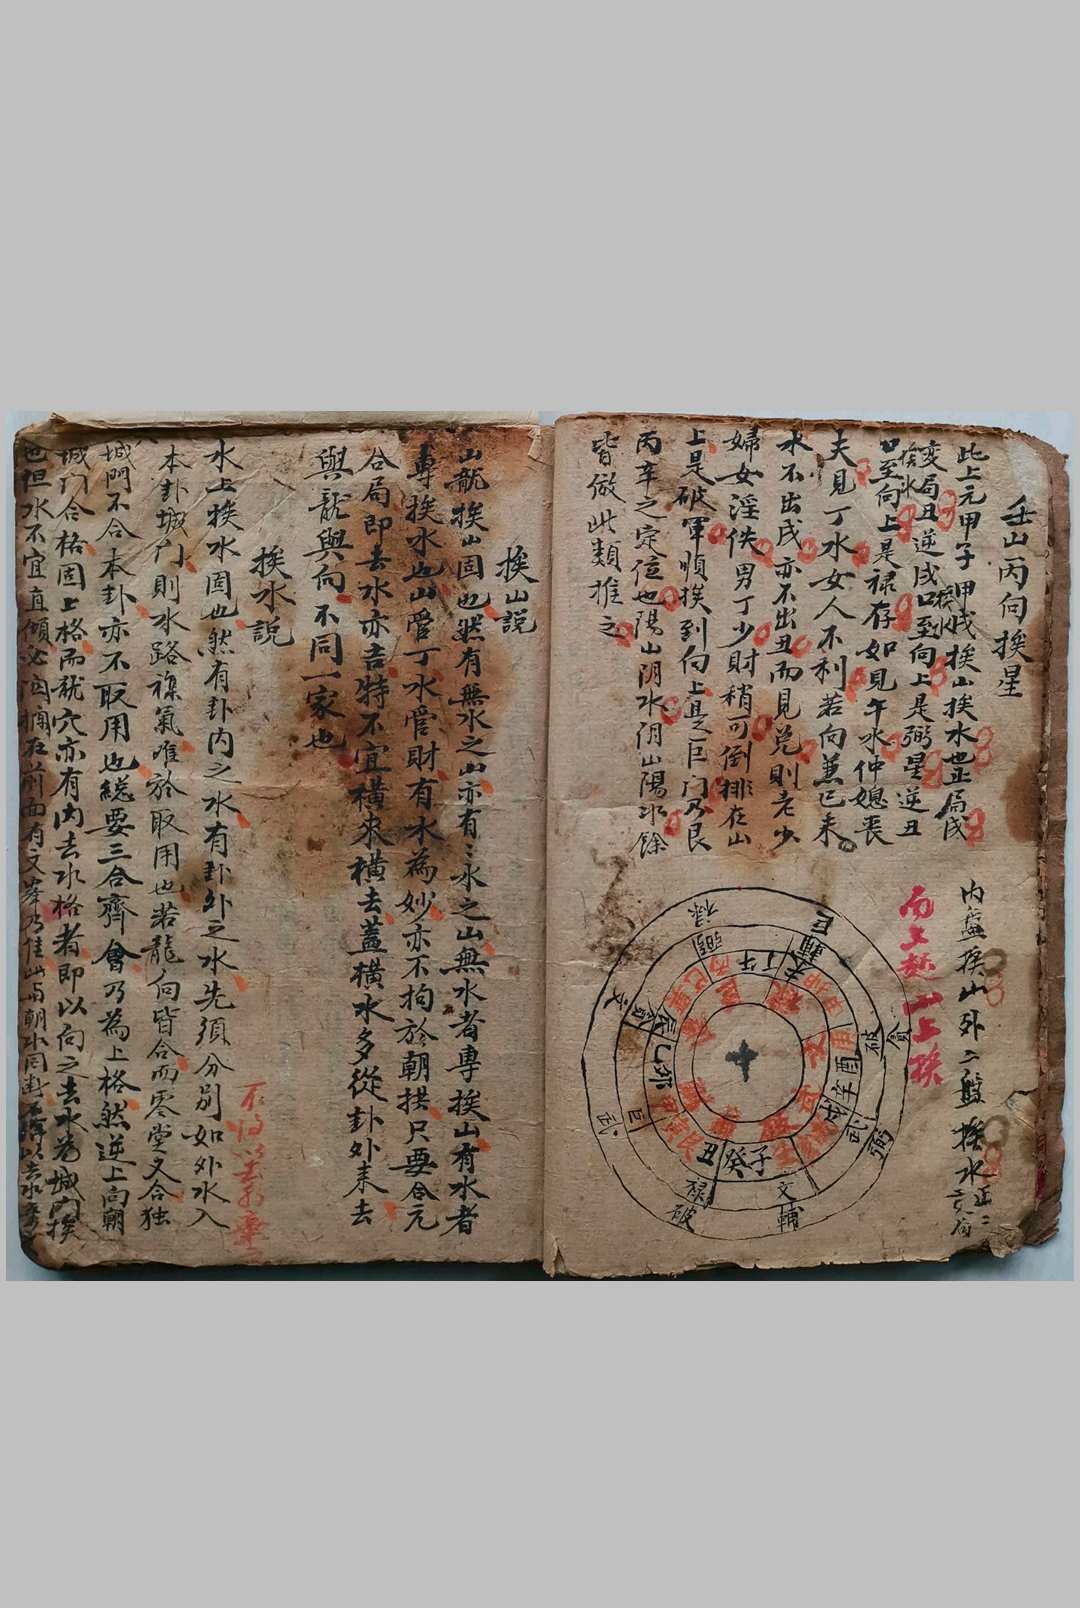 壬山丙向挨星
此上元甲子甲戌挨山挨水也正局戌
变局丑逆戌口至向上是弼星逆丑
挨水
口至向上是禄存如見午水仲媳丧
夫見丁水女人不利若向兼巳未
水不出戌亦不出丑而見兑則老少
婦女淫佚男丁少財稍可倒排在山
上是破軍順挨到向上是巨门乃艮
丙辛之定位也陽山阴水阴山陽水餘
皆倣此類推之
内盤挨山外二盤挨水
向上
山上挨
巨
輔
禄
弼
丙
午
丁
破
貪
酉
辛
武
弼
文
輔
子
癸
丑
禄
破
巨
武
文
乙
卯
挨山説
山龍挨山固也然有無水之山亦有有水之山無水者專挨山有水者
專挨水也山管丁水管財有水為妙亦不拘於朝拱只要合元
合局即去水亦吉特不宜橫來橫去蓋橫水多從卦外来去
與龍與向不同一家也
挨水説
水上挨水固也然有卦内之水有卦外之水先須分别如外水入
本卦城门則水路襍氣唯於取用也若龍向皆合而零堂又合独
城門不合本卦亦不取用也総要三合齊會乃為上格然逆上高朝
城门合格固上格而就穴亦有内去水格者即以向之去水為城门挨
也但水不宜直傾必
前面有文峯乃佳此与朝水同断